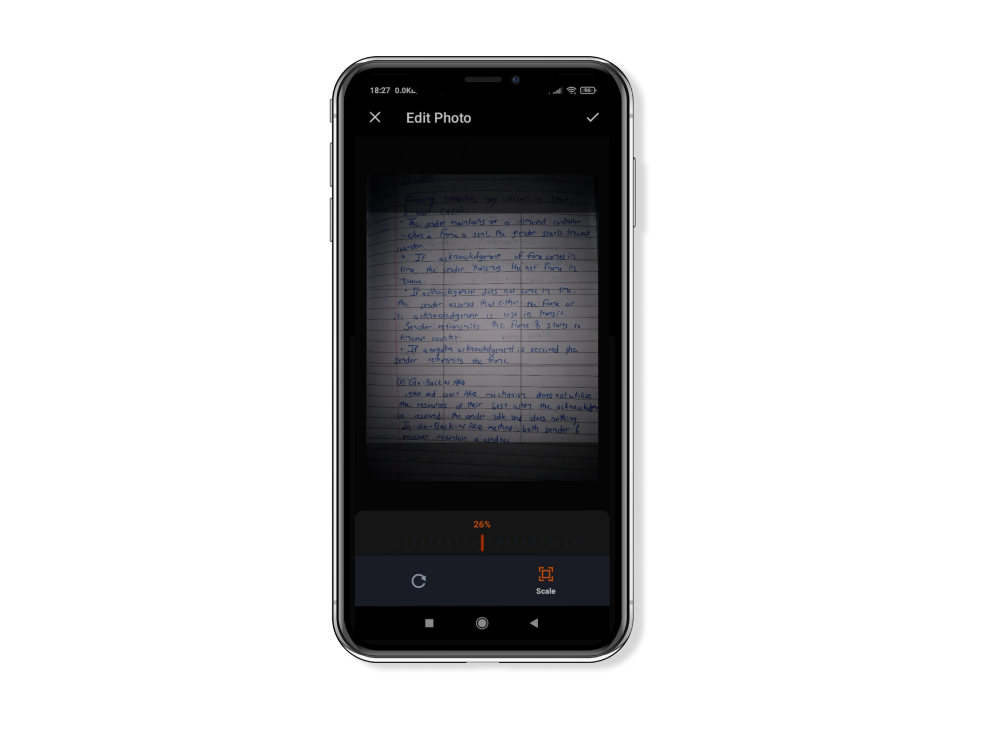 18:27 0.0K
96
Edit Photo
The sender maintains a timeout counter
When a frame is sent the sender starts timeout
counter
• If acknowledgement of frame comes in
time the sender transmits the next frame in
queue.
• If acknowledgement does not come in time
the sender assumes that either the frame or
its acknowledgement is lost in transit.
Sender retransmits the frame & starts to
timeout
• If a negative acknowledgement is received the
sender retransmits the frame
Go-Back N ARQ
stop and wait ARQ mechanism does not utilise
the resources at their best. when the
is received, the sender idle and does nothing
In Go-Back-N ARQ method, both sender &
receiver maintain a window
26%
Scale